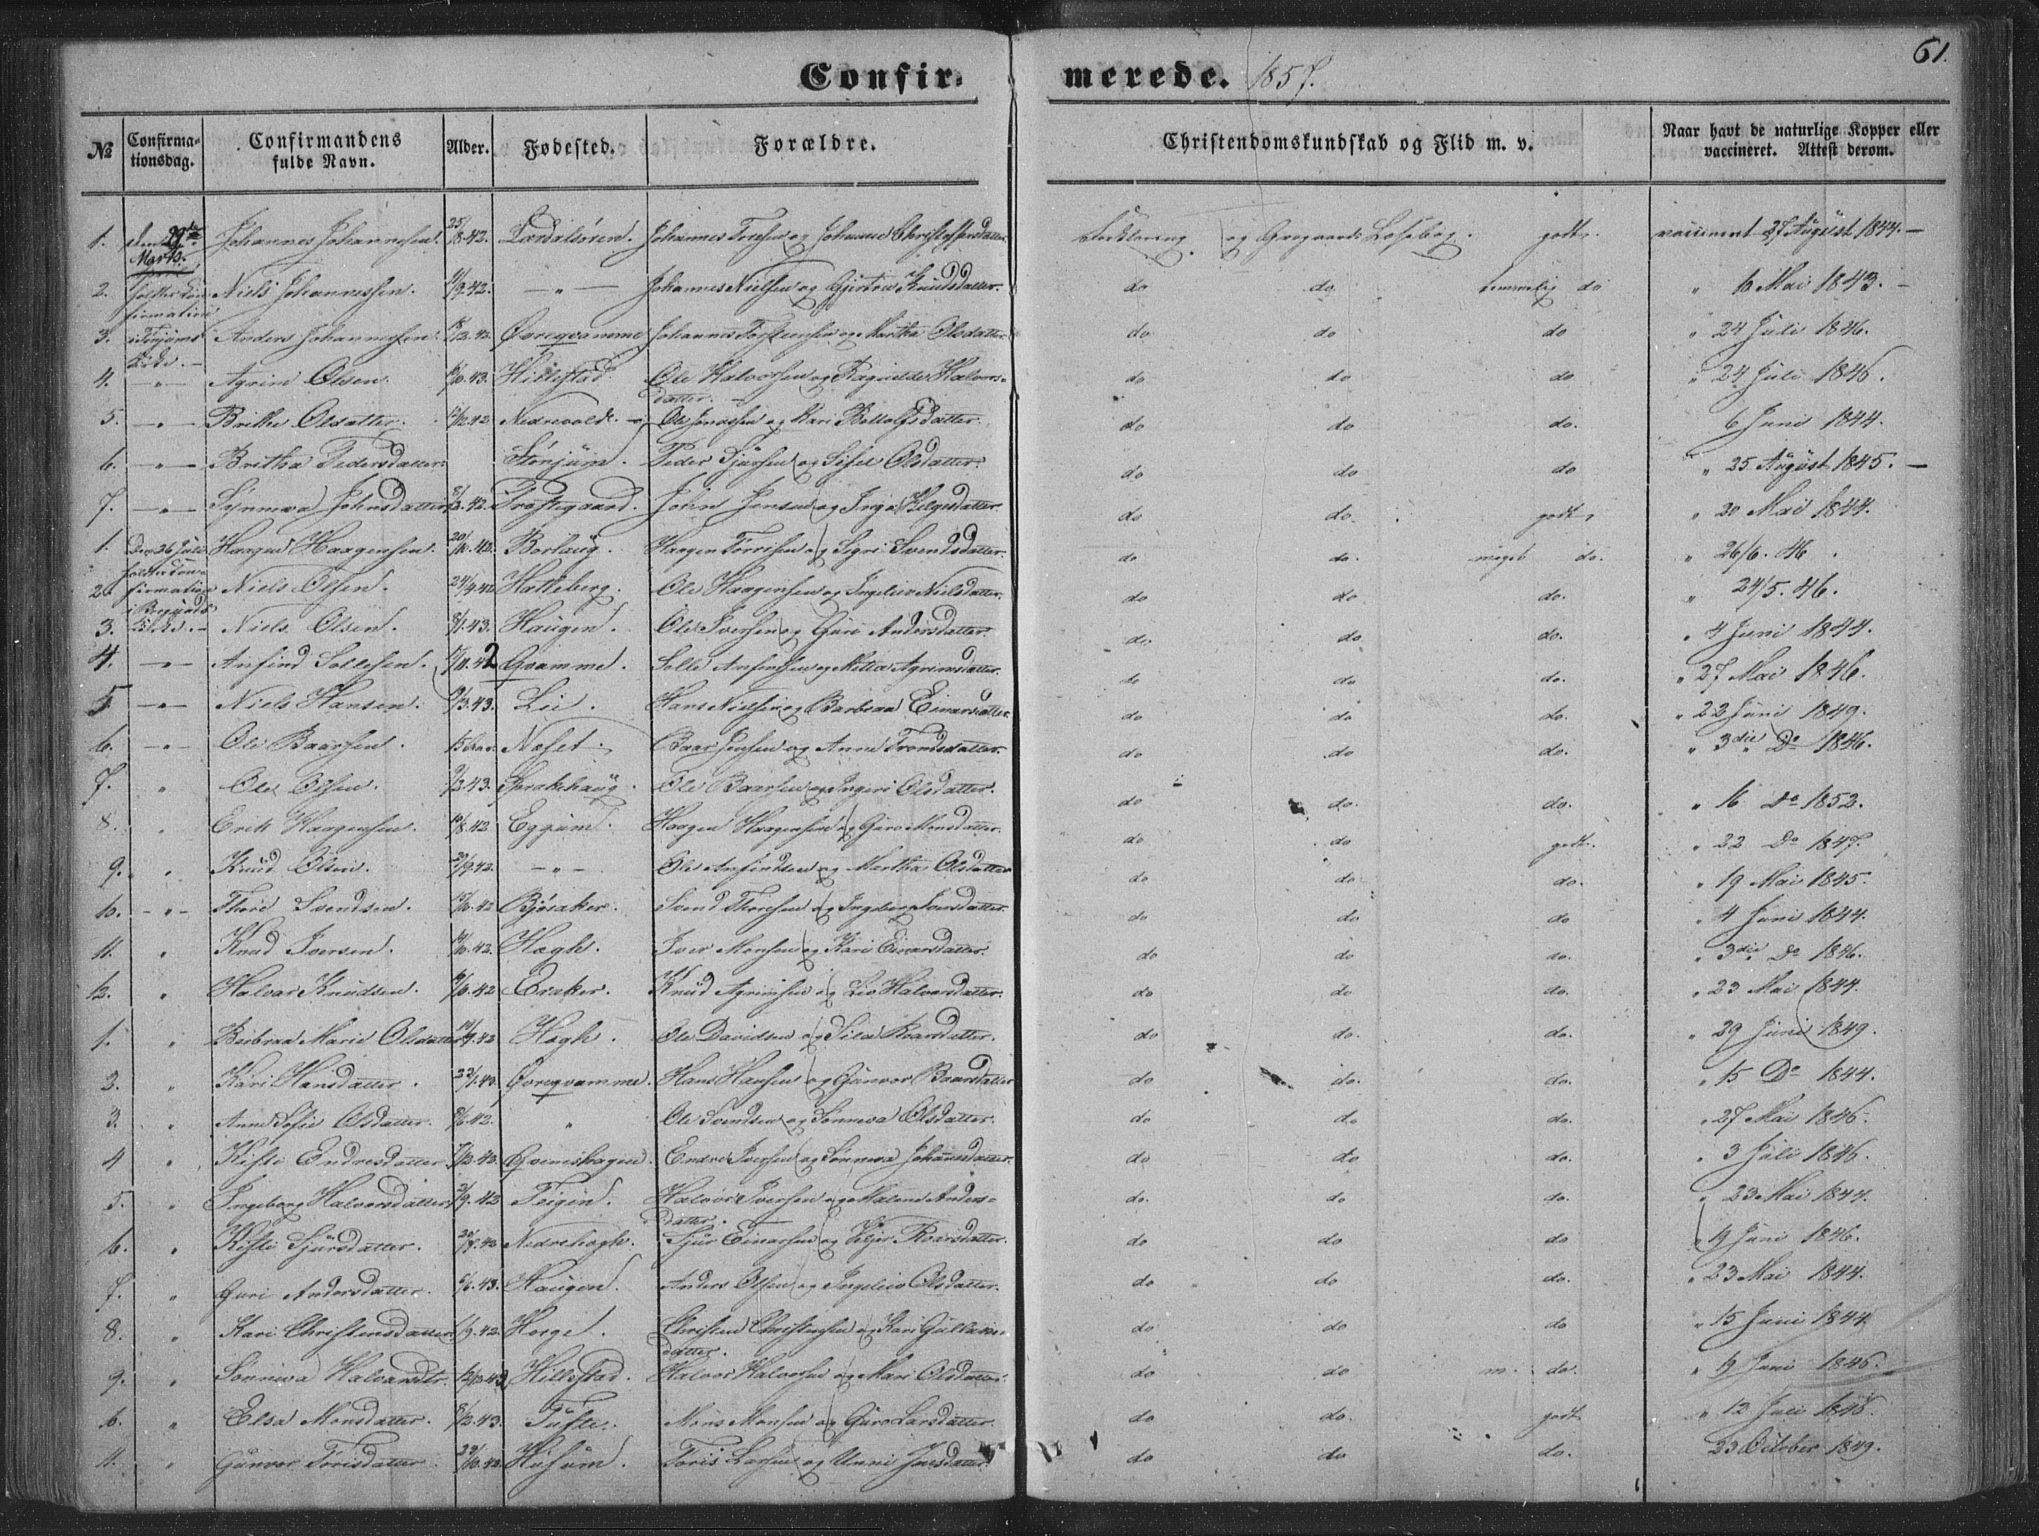 61.
Confirmerede. 1857.
№ Confirmationsdag. Confirmandens fulde Navn. Alder. Fødested. Forældre. Christendomskundskab og Flid m. v. Naar havt de naturlige Kopper eller vaccineret. Attest derom.
1. den 29de Marts. Johannes Johannesen. 25/8.42. Lærdalsøren. Johannes og Johanne Christophersdatter Forklaring og Lesebog. godt. vaccineret 27 August 1844. —
2. Niels Johannessen. 11/9.42. — " — Johannes Nielsen og Gjertru Knudsdatter. do do temmelig do " 16 Mai 1843. —
3. Anders Johannessen. Øvreqvamme Johannes Torstensen og Martha Olsdatter do do do " 24 Juli 1846.
4. — " — Agrim Olsen. Hillestad Ole Halvorsen og Ragnilde Halvorsdatter. — do do do " 24 Juli 1846.
5. — " — Brithe Olsdatter. Nedrevold. Ole Jonassen og Kari Bottolfsdatter. do do do. 6 Juni 1844.
6. — " — Britha Pedersdatter. Stønjum. Peder Sjursen og Sissel Olsdatter. do do do " 25 August 1845. —
7. — " — Synneva Johnsdatter Troftegaard. John Jensen og Inga Helgesdatter do do. godt, " 20 Mai 1844.
1. Den 26 Juli Haagen Haagensen. 20/10.42. Borlaug. Haagen Torrisen og Sigri Svendsdatter. do do. meget do. " 26/6. 46.
2. Niels Olsen. 24/9.42 Hatteberg. Ole Haagensen og Ingeleiv Nielsdatter. do do do. " 24/5. 46.
3. Niels Olsen. 8/1.43. Haugen. Ole Iversen og Guri Andersdatter. do. do do. " 4 Juni 1844.
4. — " — Anfind Sollesen. Qvamme. Solle Anfinsen og Metta Agrimsdatter. do do do. " 27 Mai 1846.
5 — " — Niels Hansen. Lie. Hans Nielsen og Barbraa Einarsdatter do do do. " 22 Juni 1849.
6. — " — Ole Baarsen. Noset. Baar Jensen og Anne Trondsdatter. do do do. " 3die Do 1846.
7. " Ole Olsen. Sprakehaug. Ole Baarsen og Ingeri Olsdatter. do do. do. " 16 Do 1852.
8. " Erik Haagensen. 10/8.42 Eggum. Haagen Haagensen og Guro Monsdatter. do do godt. " 22 Do 1847.
9. " Knud Olsen. — " — Ole Anfindsen og Martha Olsdatter do do. do. " 19 Mai 1845.
10. — " — Thore Svendsen. Bjøraker. Svend Thoresen og Ingeborg Iversdatter. do do do " 4 Juni 1844.
11. " Knud Iversen. Høgh. Iver Monsen og Kari Einarsdatter. do do do. " 3die Do 1846.
12. " Halvor Knudsen. Eraker. Knud Agrimsen og Liv Halvorsdatter. do do do. " 23 Mai 1844.
1. " Barbraa Marie Olsdatter Høgh. Ole Davidsen og Sila Roarsdatter. do do do. " 29 Juni 1849.
2. " Kari Hansdatter. Øvreqvamme. Hans Hansen og Gunvor Baarsdatter do do. do. " 15 Do 1844.
3. " Anne Sofie Olsdatter. 8/6.42. " Ole Svendsen og Sønneva Olsdatter. do do do. " 27 Mai 1846.
4 " Kisti Endresdatter Qvemshagen. Endre Iversen og Sønneva Johannesdatter. do do do. " 3 Juli 1846.
5. " Ingeborg Halvorsdatter Teigen. Halvor Iversen og Malene Andersdatter. — do. do do. " 23 Mai 1844.
6. " Kisti Sjursdatter. Nedrehøgh. Sjur Einarsen og Roarsdatter. do do do " 19 Juni 1846.
7. " Guri Andersdatter. Haugen. Anders Olsen og Ingeleiv Olsdatter. do do do. " 23 Mai 1844.
8. " Kari Christensdatter. Horge. Christen Christensen og Kari Gullaksdatter. do do do " 15 Juni 1844.
9. " Sønneva Halvarsdtr. Hillestad. Halvor Halvorsen og Mari Olsdatter. do do m. do. " 19 Juni 1846.
10. " Elsa Monsdatter. 8/12.43. Tufte. Mons Monsen og Guro Larsdatter. do do. godt " 12 Juli 1848.
11. " Gunvor Torisdatter. Husum. Toris Larsen og Unni Jensdatter do do do. 23 October 1849.